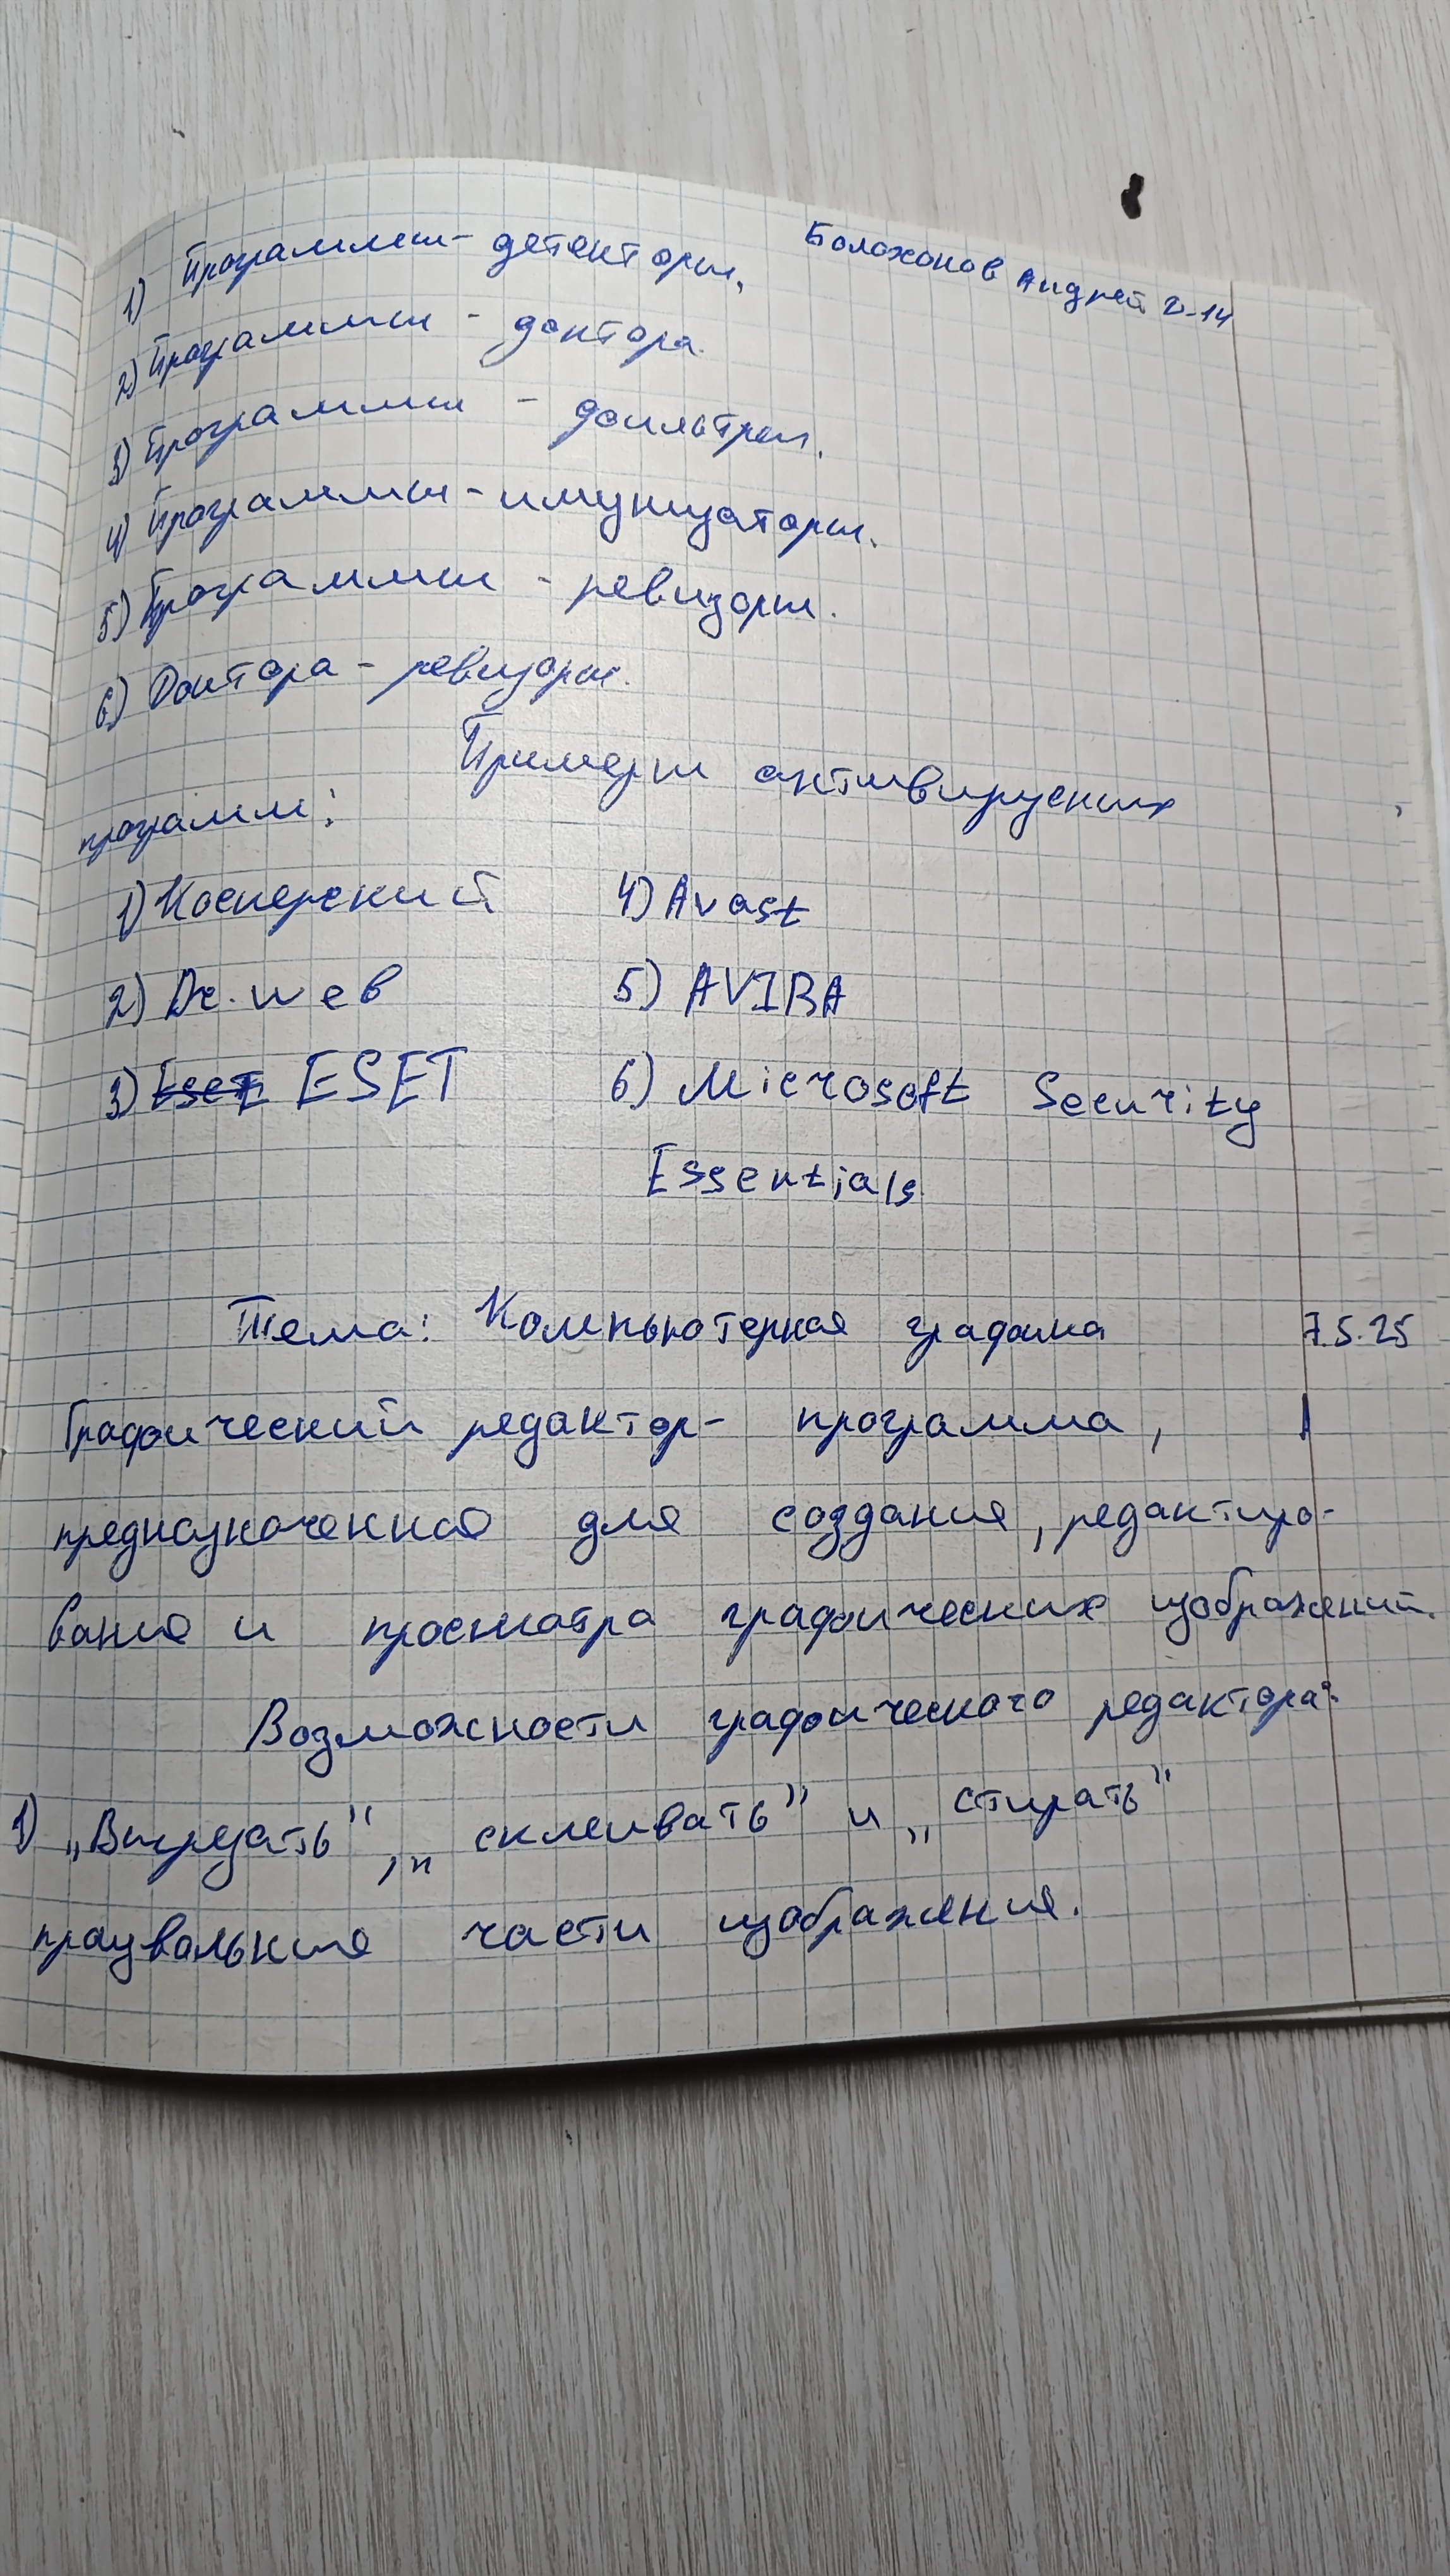 Болохонов Андрей 2-14
1) Программы - детекторы.
2) Программы - доктора.
3) Программы - фильтры.
4) Программы - имунизаторы.
5) Программы - ревизоры.
6) Доктора - ревизоры.
Примеры антивирусных
программ:
1) Касперский 4) Avast
2) Dr. web 5) AVIRA
3) Eset ESET 6) Microsoft Security
Essentials
Тема: Компьютерная графика 7.5.25
Графический редактор - программа,
предназначенная для создания, редактиро-
вания и просмотра графических изображений.
Возможности графического редактора:
1) „Вырезать", „склеивать" и „стирать"
произвольные части изображения.